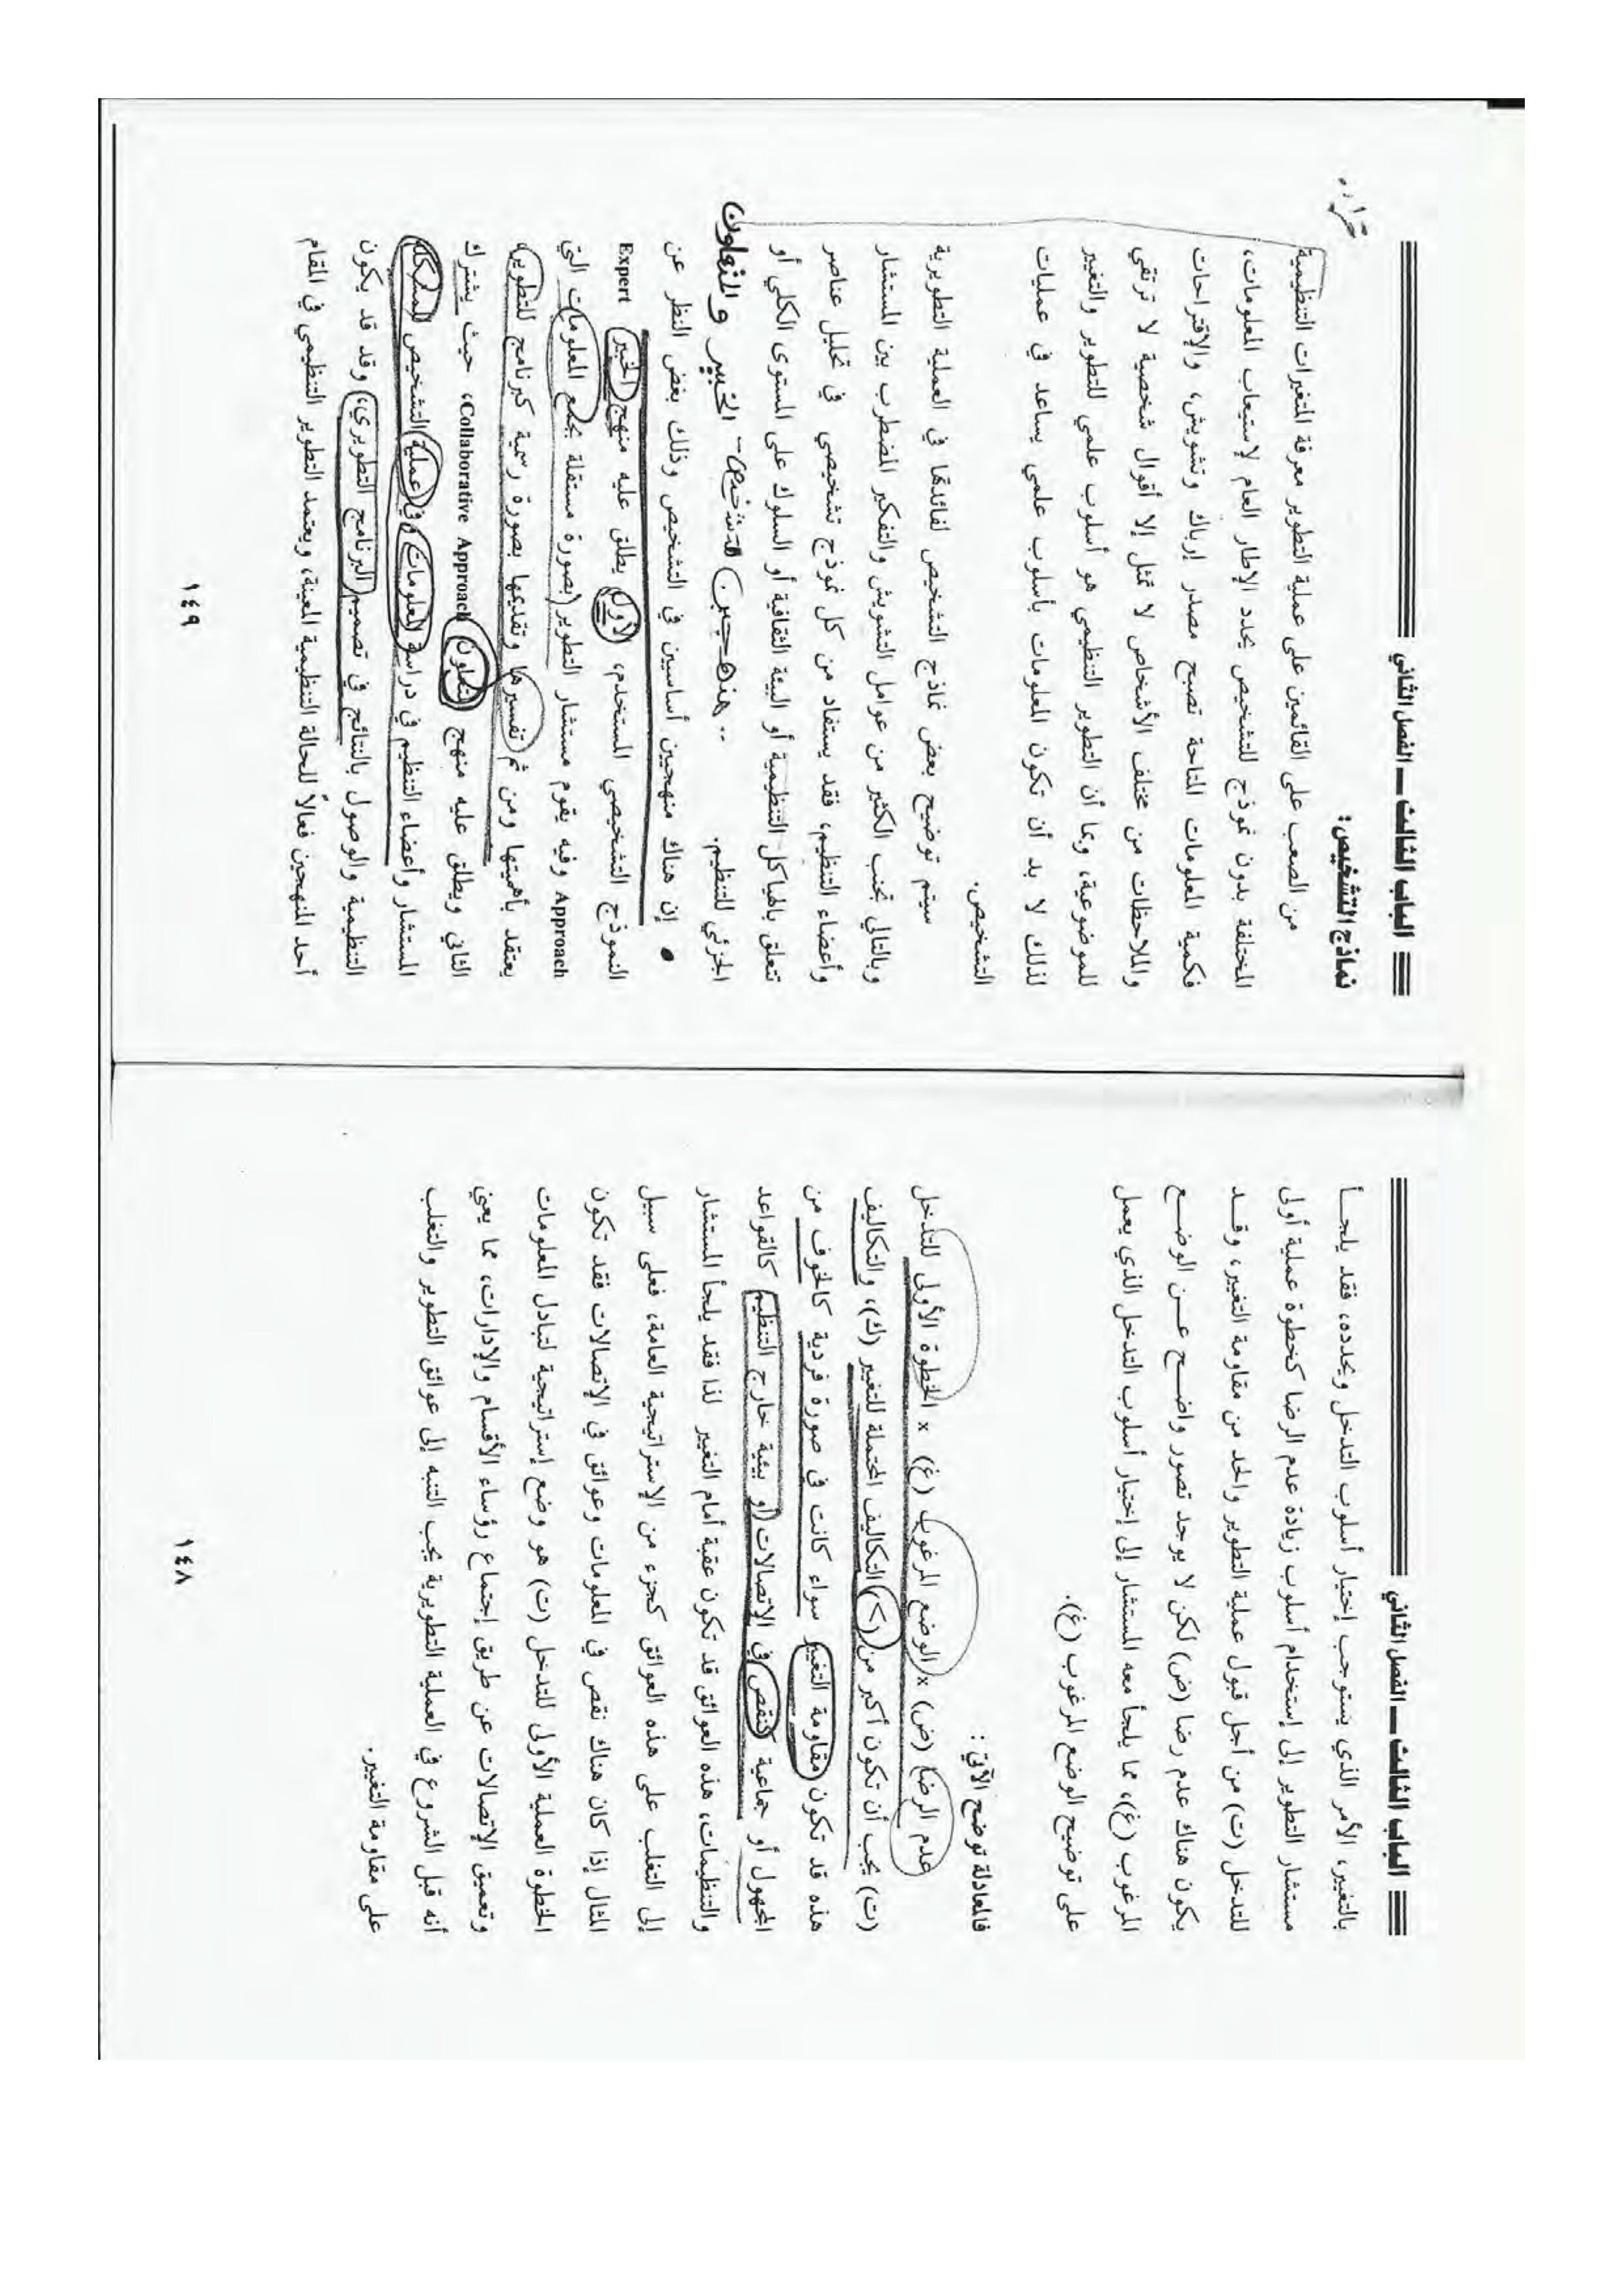 الباب الثالث ــ الفصل الثاني
بالتغيير، الأمر الذي يستوجب إختيار أسلوب التدخل ويحدده، فقد يلجــأ
مستشار التطوير إلى إستخدام أسلوب زيادة عدم الرضا كخطوة عملية أولى
للتدخل (ت) من أجل قبول عملية التطوير والحد من مقاومة التغيير، وقــد
يكون هناك عدم رضا (ض) لكن لا يوجد تصور واضــح عــن الوضــع
المرغوب (غ)، مما يلجأ معه المستشار إلى إختيار أسلوب التدخل الذي يعمل
على توضيح الوضع المرغوب (غ).
فالمعادلة توضح الآتي :
عدم الرضا (ض) x الوضع المرغوب (غ) x الخطوة الأولى للتدخل
(ت) يجب أن تكون أكبر من (>) التكاليف المحتملة للتغيير (ك)، والتكاليف
هذه قد تكون مقاومة التغيير سواء كانت في صورة فردية كالخوف من
المجهول أو جماعية كنقص في الإتصالات أو بيئية خارج التنظيم كالقواعد
والتنظيمات، هذه العوائق قد تكون عقبة أمام التغيير لذا فقد يلجأ المستشار
إلى التغلب على هذه العوائق كجزء من الإستراتيجية العامة، فعلى سبيل
المثال إذا كان هناك نقص في المعلومات وعوائق في الإتصالات فقد تكون
الخطوة العملية الأولى للتدخل (ت) هو وضع إستراتيجية لتبادل المعلومات
وتعميق الإتصالات عن طريق إجتماع رؤساء الأقسام والإدارات، مما يعني
أنه قبل الشروع في العملية التطويرية يجب التنبه إلى عوائق التطوير والتغلب
على مقاومة التغيير.
١٤٨
الباب الثالث ــ الفصل الثاني
نماذج التشخيص:
من الصعب على القائمين على عملية التطوير معرفة المتغيرات التنظيمية
المختلفة بدون نموذج للتشخيص يحدد الإطار العام لإستيعاب المعلومات،
فكمية المعلومات المتاحة تصبح مصدر إرباك وتشويش، والإقتراحات
والملاحظات من مختلف الأشخاص لا تمثل إلا أقوال شخصية لا ترتقي
للموضوعية، وبما أن التطوير التنظيمي هو أسلوب علمي للتطوير والتغيير
لذلك لا بد أن تكون المعلومات بأسلوب علمي يساعد في عمليات
التشخيص.
سيتم توضيح بعض نماذج التشخيص لفائدتها في العملية التطويرية
وبالتالي تجنب الكثير من عوامل التشويش والتفكير المضطرب بين المستشار
وأعضاء التنظيم، فقد يستفاد من كل نموذج تشخيصي في تحليل عناصر
تتعلق بالهياكل التنظيمية أو البيئة الثقافية أو السلوك على المستوى الكلي أو
الجزئي للتنظيم.
الخبير والتعاون
• إن هناك منهجين أساسيين في التشخيص وذلك بغض النظر عن
النموذج التشخيصي المستخدم، الأول يطلق عليه منهج الخبير Expert
Approach وفيه يقوم مستشار التطوير بصورة مستقلة بجمع المعلومات التي
يعتقد بأهميتها ومن ثم تفسيرها وتقديمها بصورة رسمية كبرنامج للتطوير،
الثاني ويطلق عليه منهج التعاون Collaborative Approach، حيث يشترك
المستشار وأعضاء التنظيم في دراسة المعلومات وفي عملية التشخيص للمشكلة
التنظيمية والوصول بالنتائج في تصميم البرنامج التطويري، وقد قد يكون
أحد المنهجين فعالاً للحالة التنظيمية المعينة، ويعتمد التطوير التنظيمي في المقام
١٤٩